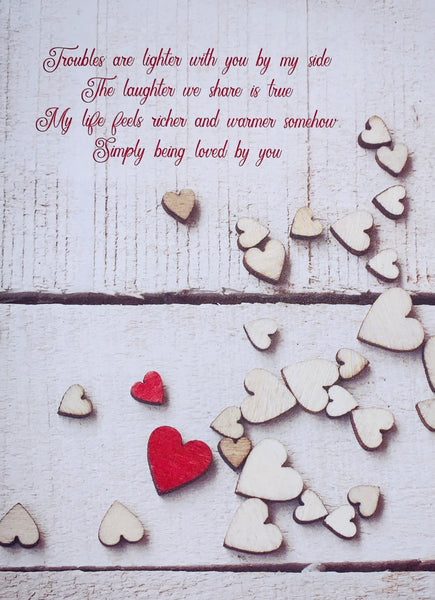 Troubles are lighter with you by my side
The laughter we share is true
My life feels richer and warmer somehow
Simply being loved by you